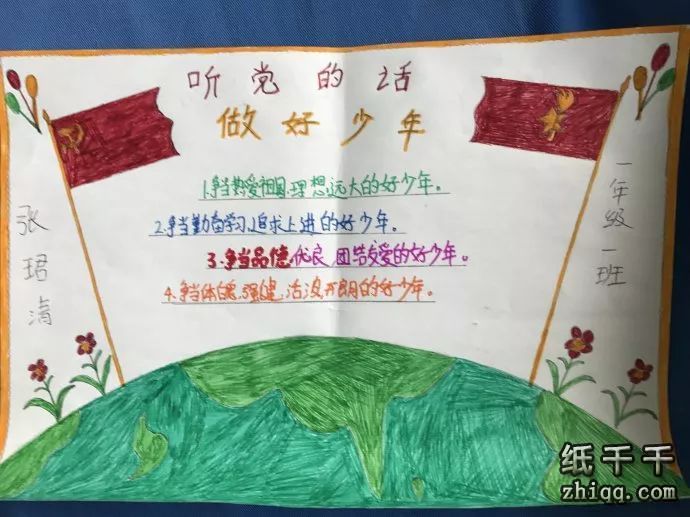 听党的话
做好少年
1.争当热爱祖国、理想远大的好少年。
2.争当勤奋学习、追求上进的好少年。
3.争当品德优良、团结友爱的好少年。
4.争当体魄强健、活泼开朗的好少年。
张珺清
一年级一班
纸千千
zhiqq.com